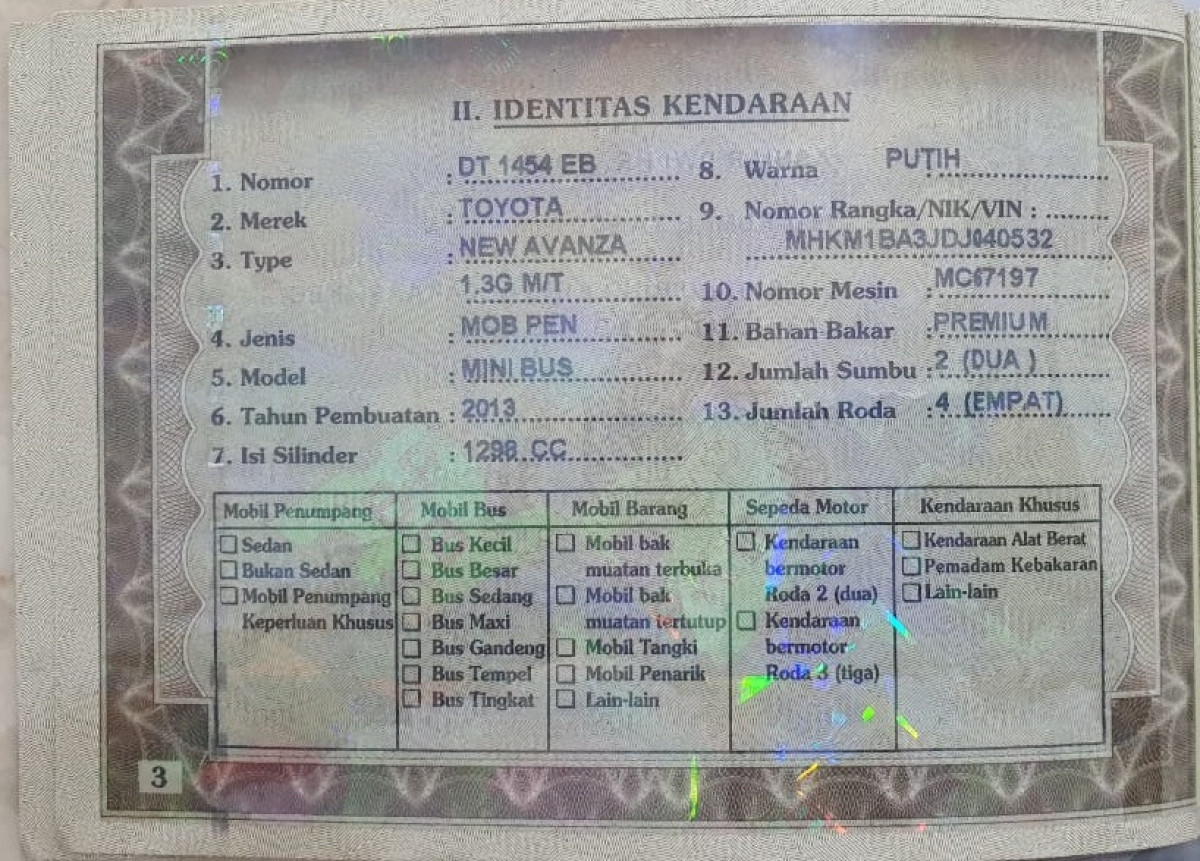 II. IDENTITAS KENDARAAN
1. Nomor : DT 1454 EB
2. Merek : TOYOTA
3. Type : NEW AVANZA
1.3G M/T
4. Jenis : MOB PEN
5. Model : MINI BUS
6. Tahun Pembuatan : 2013
7. Isi Silinder : 1298 CC
8. Warna : PUTIH
9. Nomor Rangka/NIK/VIN :
MHKM1BA3JDJ040532
10. Nomor Mesin : MC67197
11. Bahan Bakar : PREMIUM
12. Jumlah Sumbu : 2 (DUA )
13. Jumlah Roda : 4 (EMPAT)
Mobil Penumpang
Sedan
Bukan Sedan
Mobil Penumpang
Keperluan Khusus
Mobil Bus
Bus Kecil
Bus Besar
Bus Sedang
Bus Maxi
Bus Gandeng
Bus Tempel
Bus Tingkat
Mobil Barang
Mobil bak
muatan terbuka
Mobil bak
muatan tertutup
Mobil Tangki
Mobil Penarik
Lain-lain
Sepeda Motor
Kendaraan
bermotor
Roda 2 (dua)
Kendaraan
bermotor
Roda 3 (tiga)
Kendaraan Khusus
Kendaraan Alat Berat
Pemadam Kebakaran
Lain-lain
3